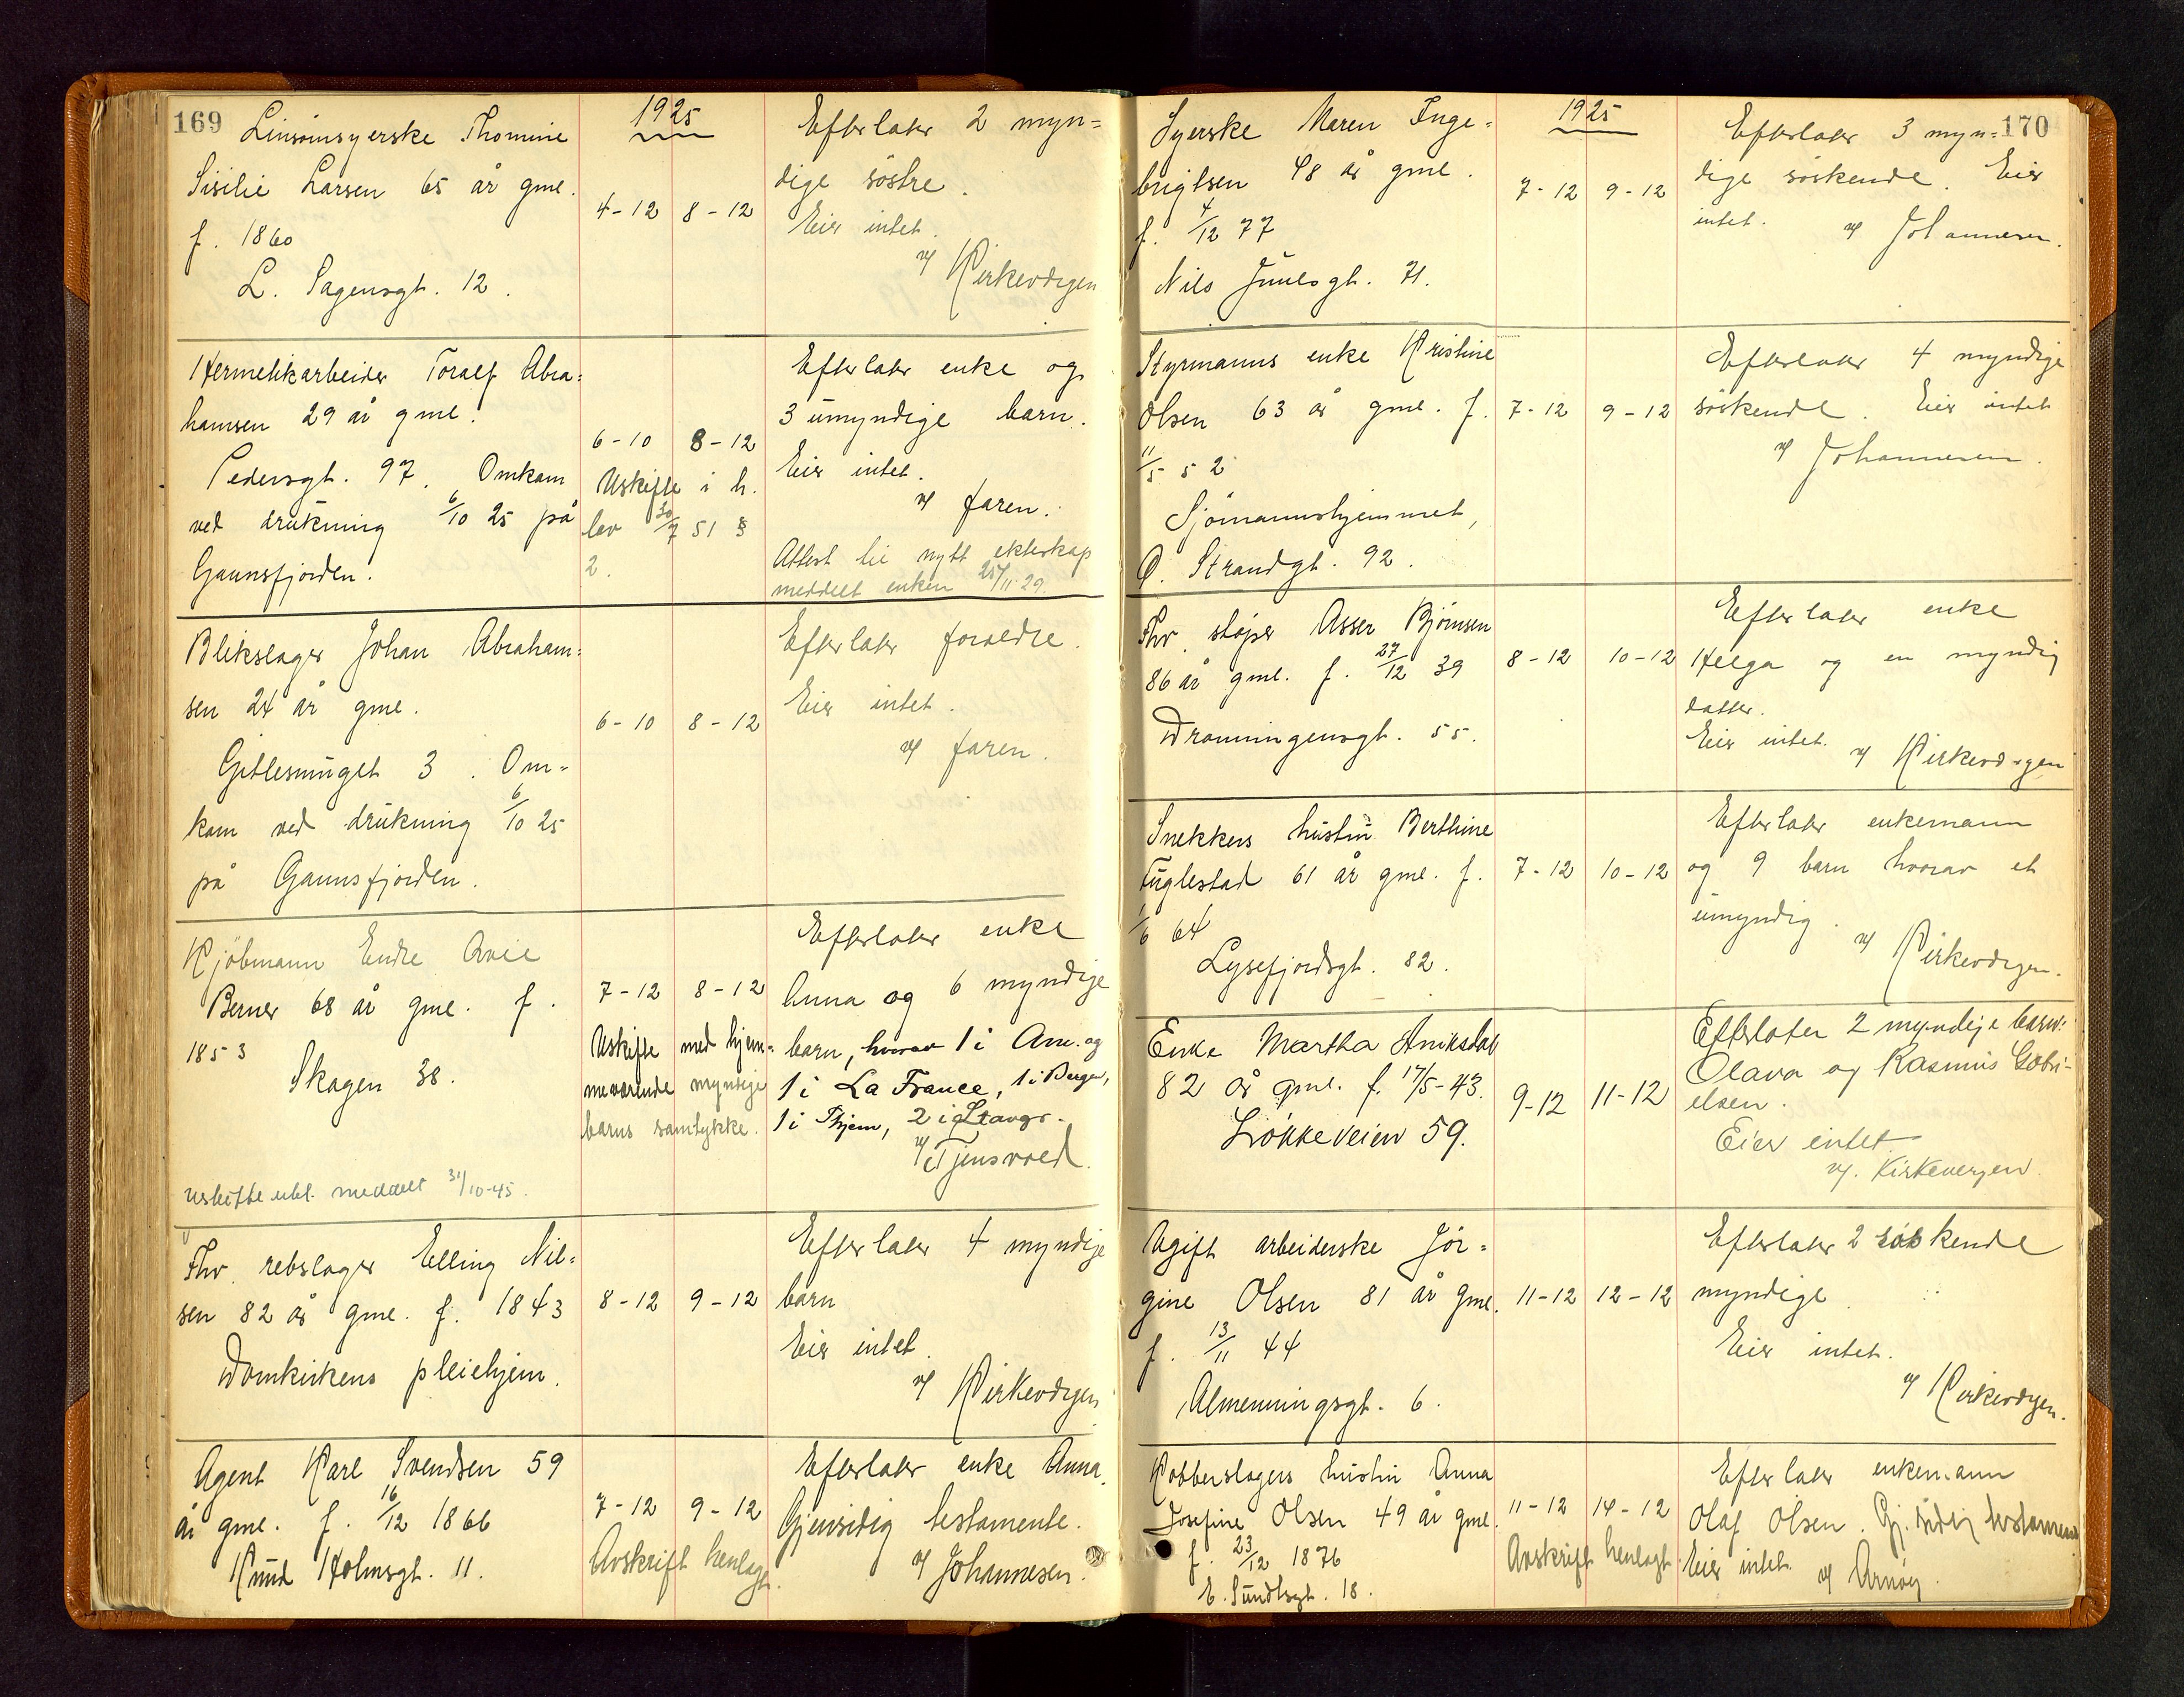 169
1925
Linsömsyerske Thomine
Sisilie Larsen 65 år gml.
f. 1860
L. Sagensgt. 12.
4-12 8-12
Efterlater 2 myn=
dige söstre.
Eier intet.
v/ Kirkevergen
Hermetikarbeider Toralf Abra=
hamsen 29 år gml.
Pedersgt. 97. Omkom
ved drukning 6/10 25 på
Gannsfjorden.
6-10 8-12
Uskifte i h.
lov 30/7 51 §
2.
Efterlater enke og
3 umyndige barn.
Eier intet.
v/ faren.
Attest til nytt ekteskap
meddelt enken 25/11 29.
Blikslager Johan Abraham=
sen 24 år gml.
Gitlesmuget 3. Om=
kom ved drukning 6/10 25
på Gannsfjorden.
6-10 8-12
Efterlater foreldre.
Eier intet.
v/ faren.
Kjöbmann Endre
Berner 68 år gml. f.
1853
Skagen 38.
Uskifte meddelt 31/10-45.
7-12 8-12
Uskifte med hjem=
meværende myndige
barns samtykke.
Efterlater enke
Anna og 6 myndige
barn, hvorav 1 i Am. og
1 i La France, 1 i Bergen,
1 i Thjem, 2 i Stavgr.
v/ Tjensvold.
Fhv. rebslager Elling Nil=
sen 82 år gml. f. 1843
Domkirkens pleiehjem.
8-12 9-12
Efterlater 4 myndige
barn
Eier intet.
v/ Kirkevergen
Agent Karl Svendsen 59
år gml. f. 16/12 1866
Knud Holmsgt. 11.
7-12 9-12
Avskrift henlagt.
Efterlater enke Anna.
Gjensidig testamente.
v/ Johannesen.
170
1925
Syerske Maren Inge=
brigtsen 48 år gml.
f. 4/12 77
Nils Juulsgt. 71.
7-12 9-12
Efterlater 3 myn=
dige söskende. Eier
intet.
v/ Johannesen.
Styrmanns enke Kristine
Olsen 63 år gml. f.
11/5 52
Sjömannshjemmet,
Ö. Strandgt. 92.
7-12 9-12
Efterlater 4 myndige
söskende. Eier intet
v/ Johannesen.
Fhv. stöper Asser Björnsen
86 år gml. f. 27/12 39
Dronningensgt. 55.
8-12 10-12
Efterlater enke
Helga og en myndig
datter.
Eier intet. v/ Kirkevergen
Snekkers hustru Berthine
Fuglestad 61 år gml. f.
1/6 64
Lysefjordsgt. 82.
7-12 10-12
Efterlater enkemann
og 9 barn hvorav et
umyndig.
v/ Kirkevergen.
Enke Martha Aniksdal
82 år gml. f. 17/5-43.
Lökkeveien 59.
9-12 11-12
Efterlater 2 myndige barn:
Olava og Rasmus Gabri-
elsen.
Eier intet
v/. Kirkevergen.
Ugift arbeiderske Jör=
gine Olsen 81 år gml.
f. 13/11 44
Almenningsgt. 6.
11-12 12-12
Efterlater 2 söskende
myndige.
Eier intet.
v/ Kirkevergen.
Kobberslagers hustru Anna
Josefine Olsen 49 år gml.
f. 23/12 1876
E. Sundtsgt. 18.
11-12 14-12
Avskrift henlagt.
Efterlater enkemann
Olaf Olsen. Gj.sidig testament
Eier intet. v/ Arnöy.